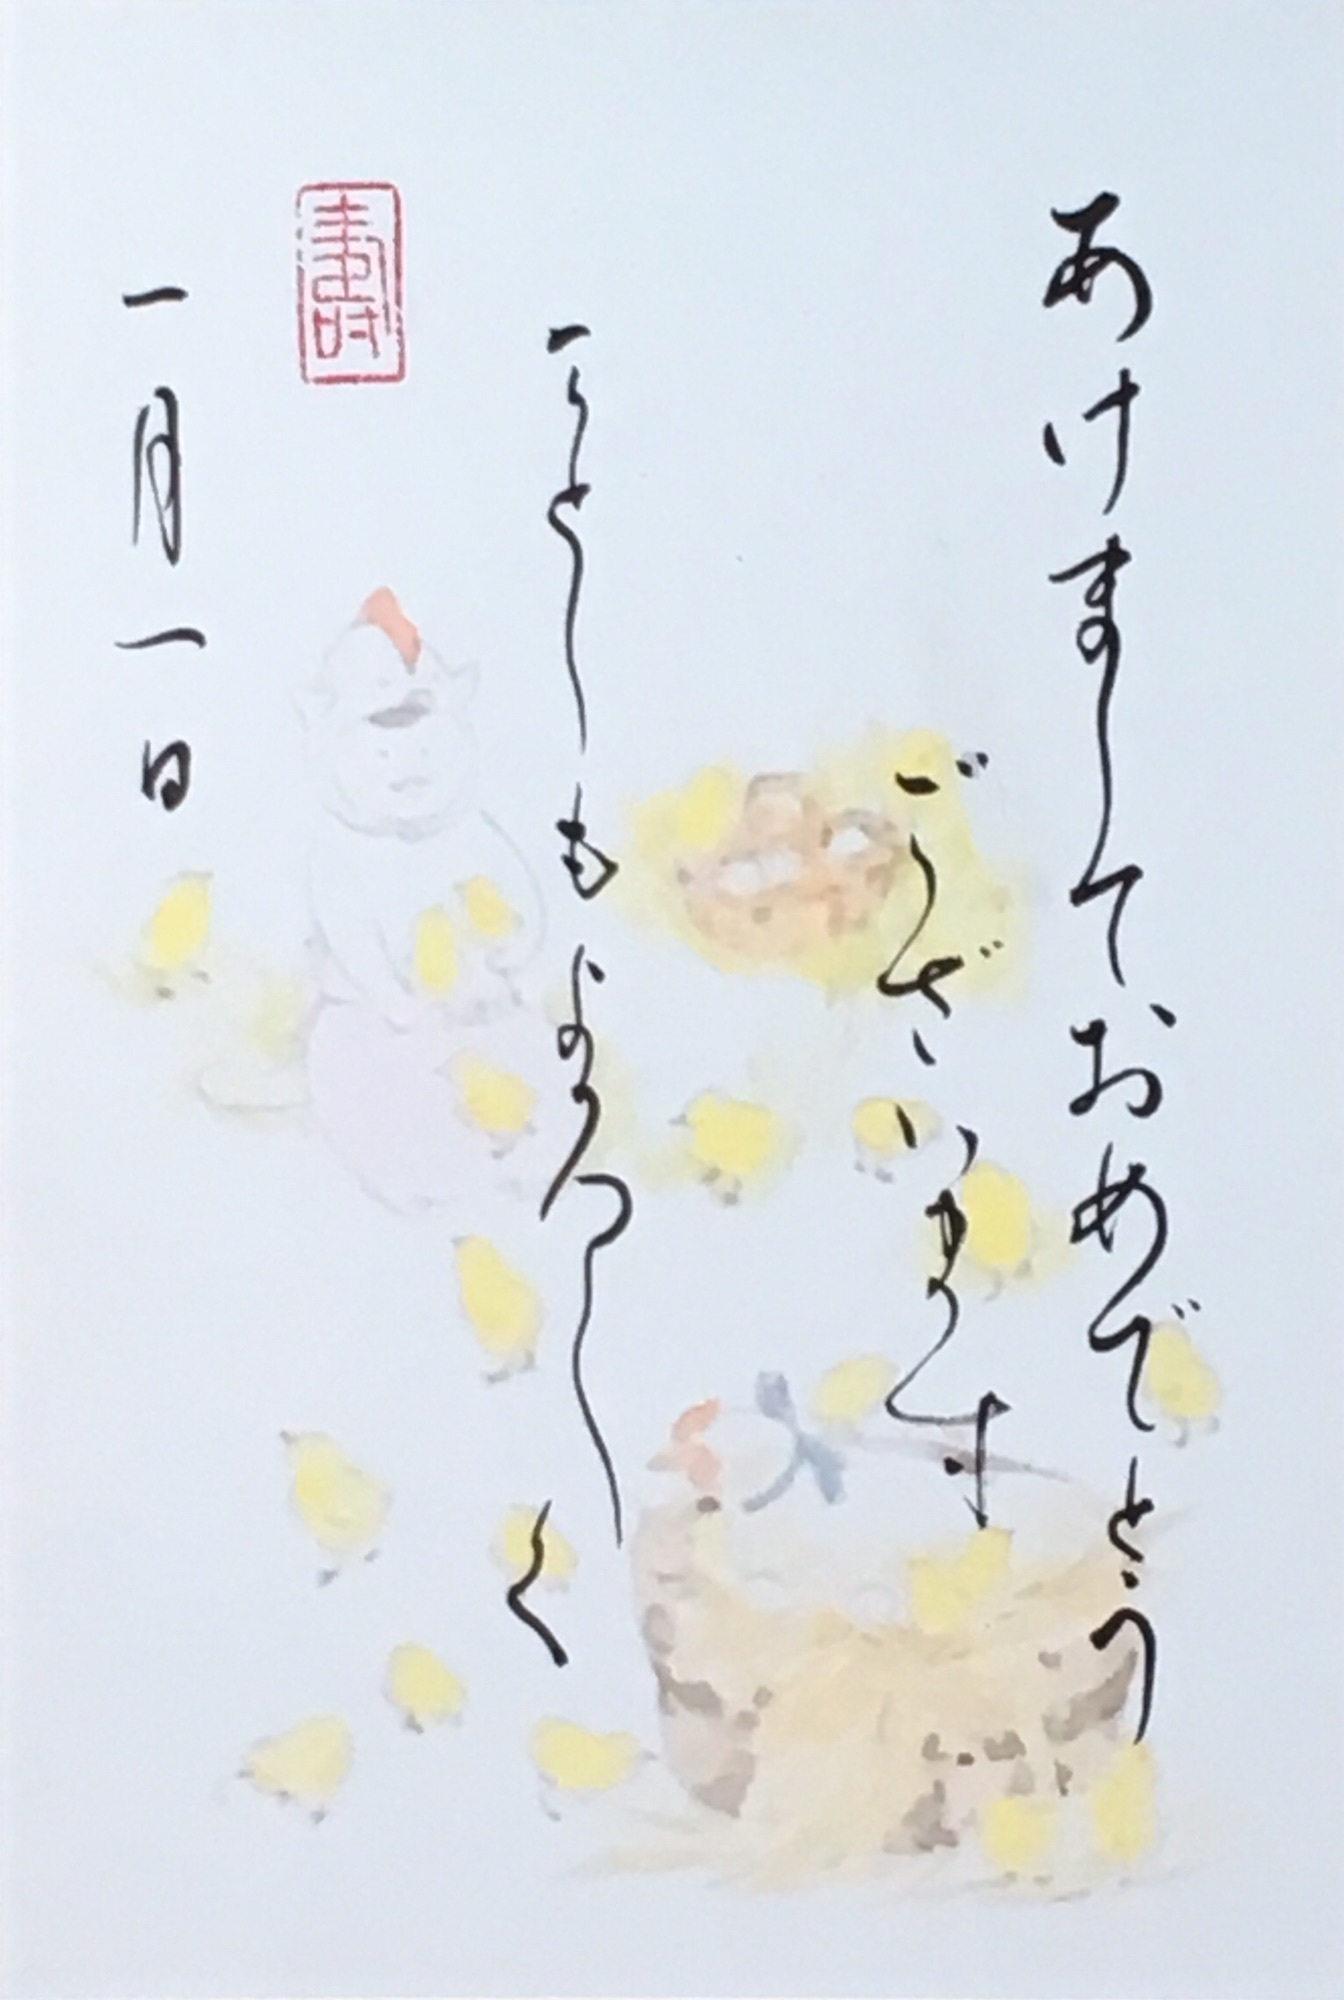 あけましておめでとう
ございます
ことしもよろしく
寿
一月一日